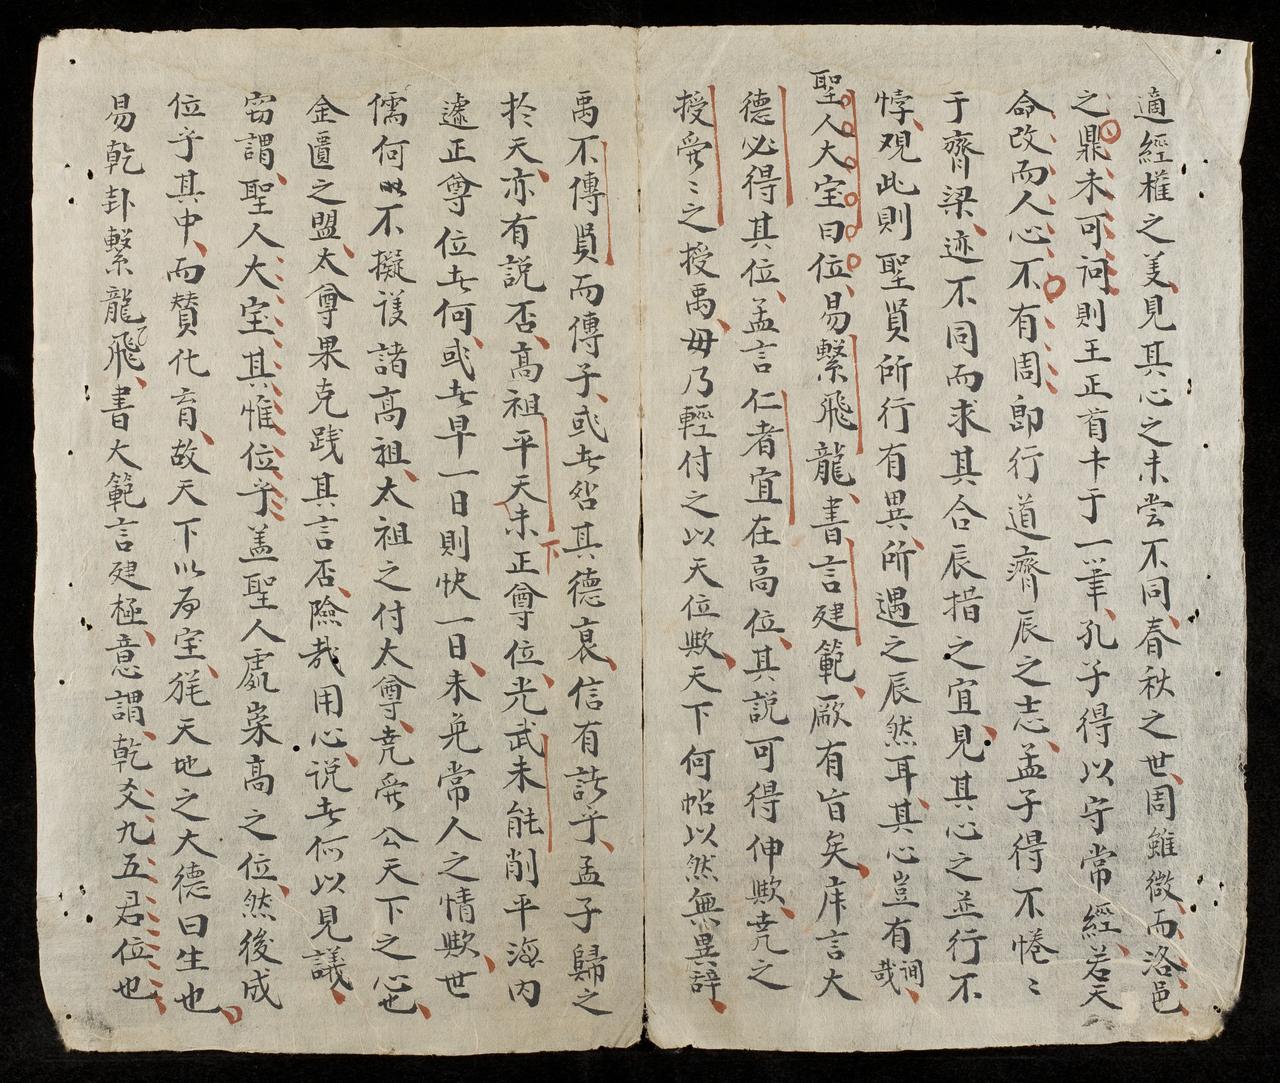 適經權之美見其心之未尝不同春秋之世周雖微而洛邑
之鼎未可问則王正首卡于一筆孔子得以守常經若天
命改而人心不有周郎行道齊辰之志孟子得不惓〻
于齊梁迹不同而求其合辰措之宜見其心之並行不
悖观此則聖賢所行有異所遇之辰然耳其心豈有间哉
聖人大宝曰位易繫飛龍書言建範厥有旨矣床言大
德必得其位孟言仁者宜在高位其説可得伸欤尭之
授舜〻之授禹毋乃輕付之以天位欤天下何帖以然無異辞
禹不傳賢而傳子或者咎其德衰信有諸乎孟子歸之
於天亦有説否高祖平天未正尊位光武未能削平海内
遽正尊位者何或者早一日則快一日未免常人之情欤世
儒何以不擬议諸高祖太祖之付太尊尭舜公天下之心也
金匱之盟太尊果克践其言否險哉用心说者何以見議
窃謂聖人大宝其惟位乎盖聖人處崇高之位然後成
位乎其中而賛化育故天下以为宝能天地之大德曰生也
易乾卦繫龍飛書大範言建極意謂乾爻九五君位也